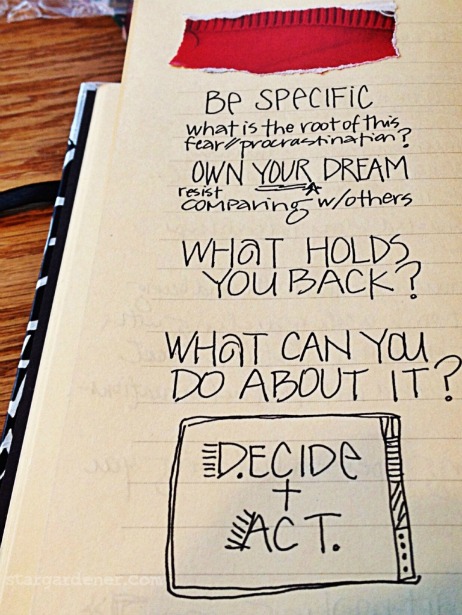 Be SPECIFIC
what is the root of this
fear//procrastination?
OWN YOUR DREAM
resist
comparing w/others
WHaT HOLDS
YOU BACK?
WHaT CAN YOU
DO ABOUT IT?
D.ECIDe
+
ACT.
stargardener.com